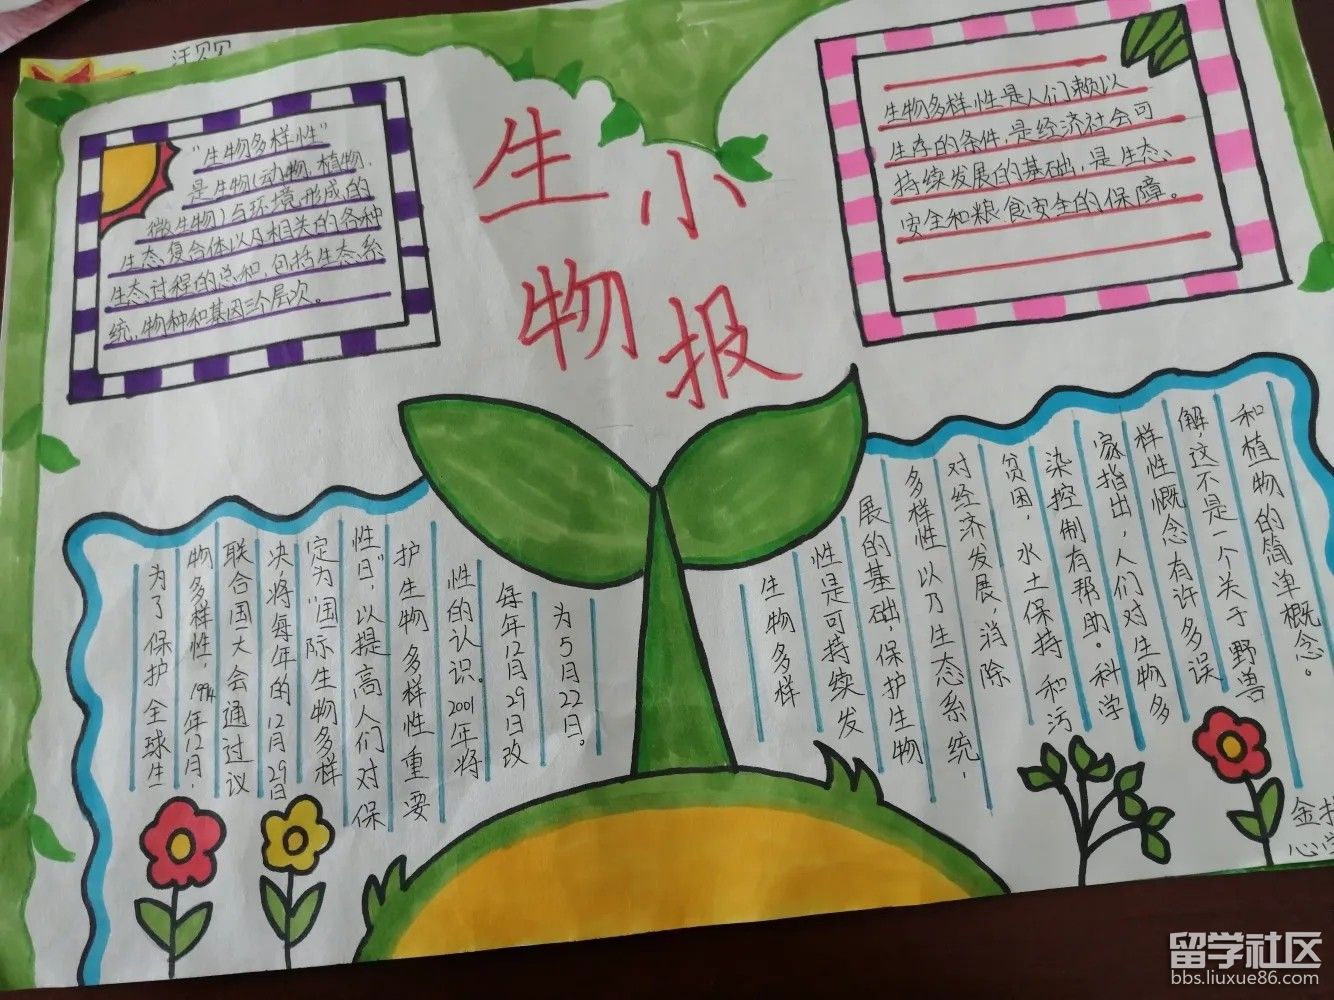 生物
小报
"生物多样性"
是生物(动物,植物,
微生物)与环境形成的
生态复合体以及相关的各种
生态过程的总和,包括生态系
统,物种和基因三个层次。
生物多样性是人们赖以
生存的条件,是经济社会可
持续发展的基础,是生态、
安全和粮食安全的保障。
为了保护全球生
物多样性，1994年12月，
联合国大会通过议
决将每年的12月29日
定为"国际生物多样
性日"，以提高人们对保
护生物多样性重要
性的认识。2001年将
每年12月29日改
为5月22日。
生物多样
性是可持续发
展的基础，保护生物
多样性以乃生态系统，
对经济发展，消除
贫困，水土保持和污
染控制有帮助。科学
家指出，人们对生物多
样性慨念有许多误
解，这不是一个关于野兽
和植物的简单概念。
留学社区
bbs.liuxue86.com